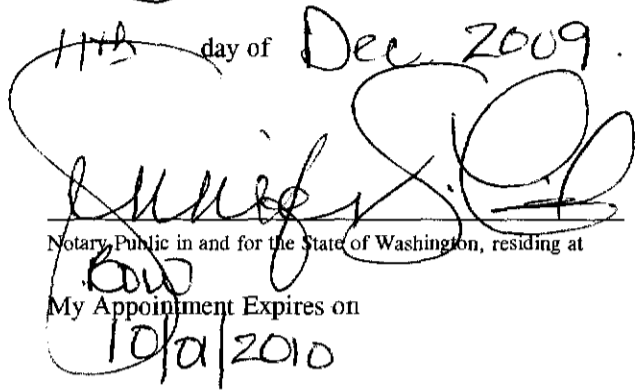 11th day of Dec 2009.
Notary Public in and for the State of Washington, residing at
Bow
My Appointment Expires on
10/01/2010